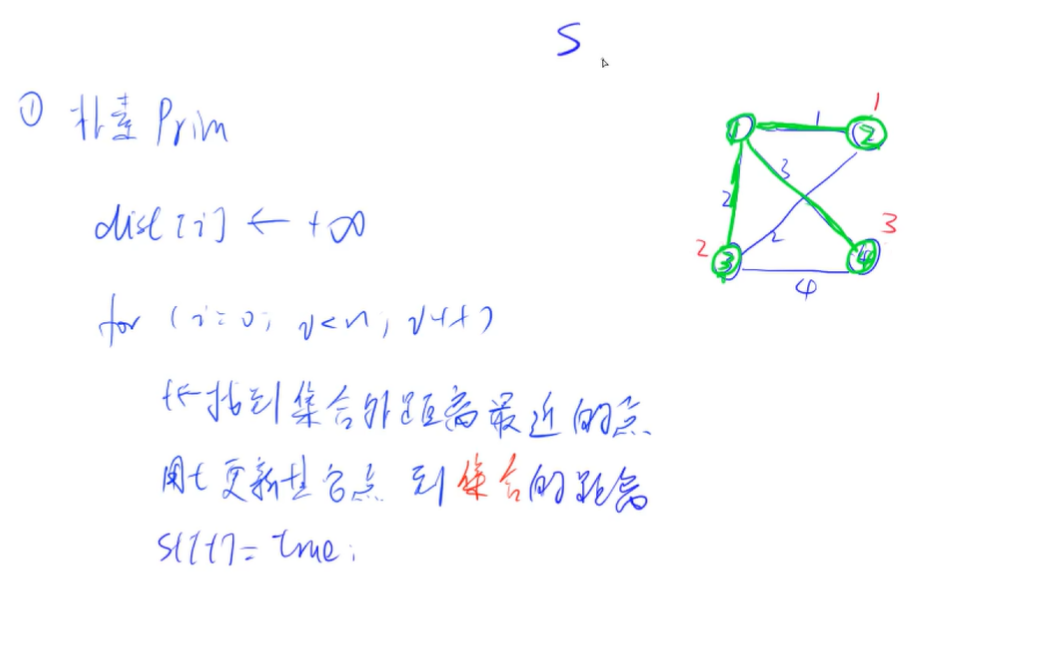 S
① 朴素 Prim
dist[i] ← +∞
for (i=0; i<n; i++)
t←找到集合外距离最近的点
用t更新其它点 到集合的距离
st[t]=true;
1
1 1 2
3
2
3
2 3 2 4
4